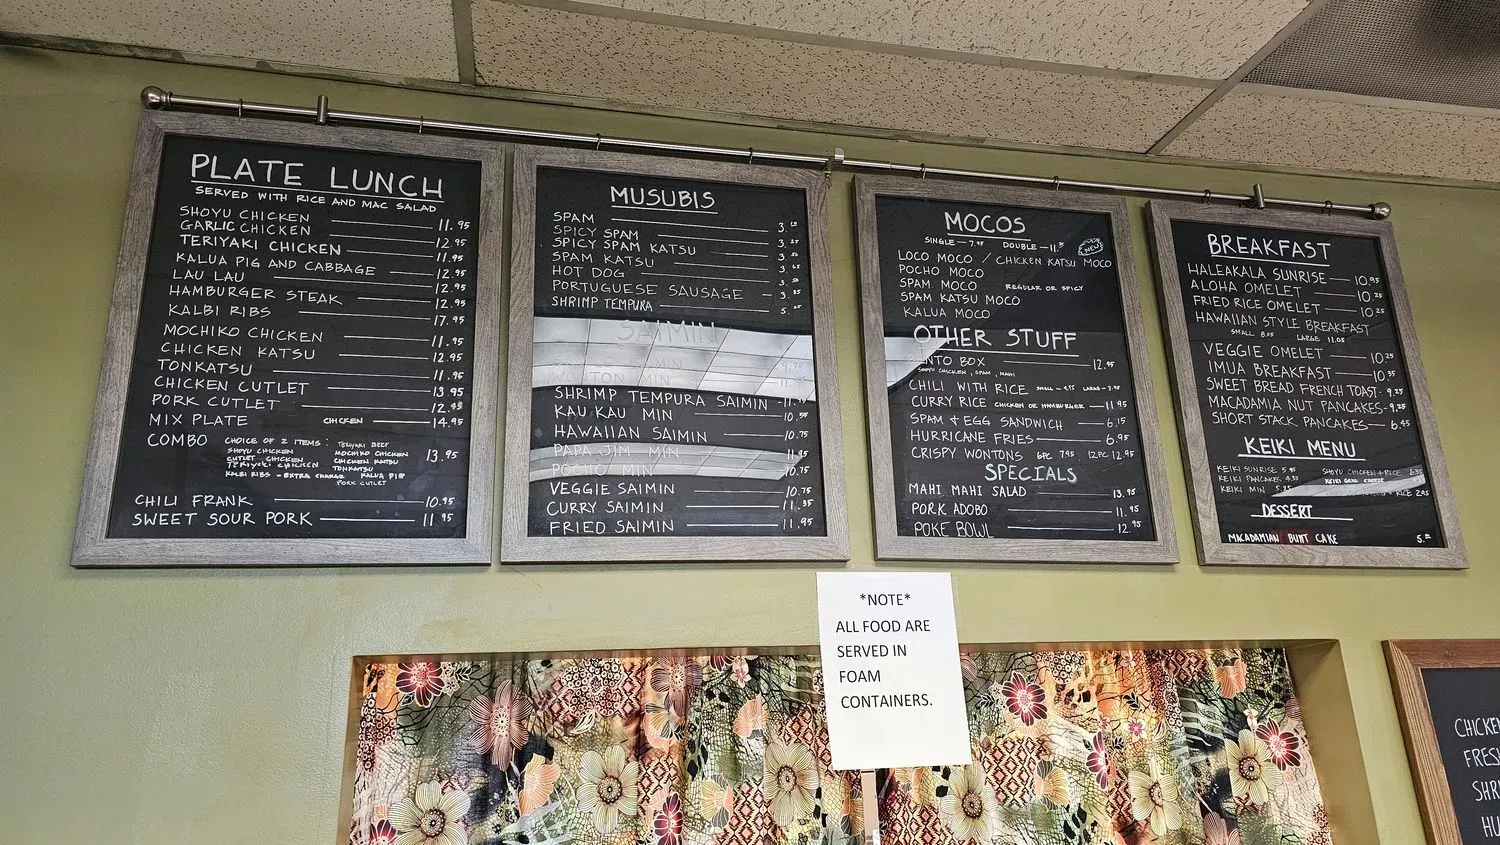 PLATE LUNCH
SERVED WITH RICE AND MAC SALAD
SHOYU CHICKEN 11.95
GARLIC CHICKEN 12.95
TERIYAKI CHICKEN 11.95
KALUA PIG AND CABBAGE 12.95
LAU LAU 12.95
HAMBURGER STEAK 12.95
KALBI RIBS 17.95
MOCHIKO CHICKEN 11.95
CHICKEN KATSU 12.95
TONKATSU 11.95
CHICKEN CUTLET 13.95
PORK CUTLET 12.95
MIX PLATE CHICKEN 14.95
COMBO CHOICE OF 2 ITEMS: 13.95
SHOYU CHICKEN
CUTLET CHICKEN
TERIYAKI CHICKEN
KALBI RIBS - EXTRA CHARGE
TERIYAKI BEEF
MOCHIKO CHICKEN
CHICKEN KATSU
TONKATSU
KALUA PIG
PORK CUTLET
CHILI FRANK 10.95
SWEET SOUR PORK 11.95
MUSUBIS
SPAM
SPICY SPAM 3.25
SPICY SPAM KATSU
SPAM KATSU
HOT DOG
PORTUGUESE SAUSAGE
SHRIMP TEMPURA
SAIMIN
SHRIMP TEMPURA SAIMIN
KAU KAU MIN
HAWAIIAN SAIMIN 10.75
PAPA JIM MIN
POCHO MIN 10.75
VEGGIE SAIMIN 10.75
CURRY SAIMIN 11.35
FRIED SAIMIN 11.95
MOCOS
SINGLE - 7.95 DOUBLE
NEW
LOCO MOCO / CHICKEN KATSU MOCO
POCHO MOCO
SPAM MOCO REGULAR OR SPICY
SPAM KATSU MOCO
KALUA MOCO
OTHER STUFF
BENTO BOX 12.95
SHOYU CHICKEN, SPAM, MAHI
CHILI WITH RICE SMALL - 4.95 LARGE - 7.95
CURRY RICE CHICKEN OR HAMBURGER 11.95
SPAM + EGG SANDWICH 6.15
HURRICANE FRIES 6.95
CRISPY WONTONS 6PC 7.95 12PC 12.95
SPECIALS
MAHI MAHI SALAD 13.95
PORK ADOBO 11.95
POKE BOWL 12.95
BREAKFAST
HALEAKALA SUNRISE 10.95
ALOHA OMELET 10.25
FRIED RICE OMELET 10.25
HAWAIIAN STYLE BREAKFAST
SMALL 8.05 LARGE 11.05
VEGGIE OMELET 10.25
IMUA BREAKFAST 10.55
SWEET BREAD FRENCH TOAST - 9.25
MACADAMIA NUT PANCAKES - 9.25
SHORT STACK PANCAKES 6.45
KEIKI MENU
KEIKI SUNRISE 5.95
KEIKI PANCAKE 4.55
KEIKI MIN 5.25
SHOYU CHICKEN + RICE 6.35
KEIKI GRILL CHEESE
RICE 2.95
DESSERT
MACADAMIAN BUNT CAKE 5.00
*NOTE*
ALL FOOD ARE
SERVED IN
FOAM
CONTAINERS.
CHICKE
FRES
SHR
HU